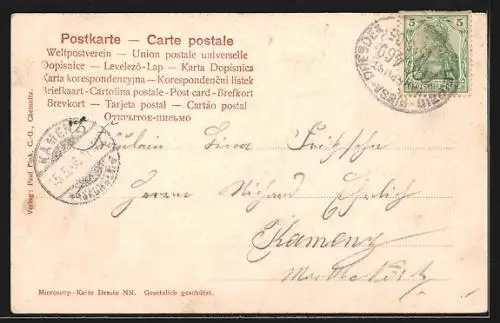 Postkarte — Carte postale
Weltpostverein — Union postale universelle
Dopisnice — Levelező-Lap — Karta Dopisnica
Karta korespondencyjna — Korespondenční lístek
Briefkaart - Cartolina postale - Post card - Brefkort
Brevkort — Tarjeta postal — Cartão postal
Открытое-письмо
5 5
KAMENZ
Fräulein Lina Fritzsche
Herrn Richard Ehrlich
Kamenz
Microscop.-Karte Dessin NN. Gesetzlich geschützt.